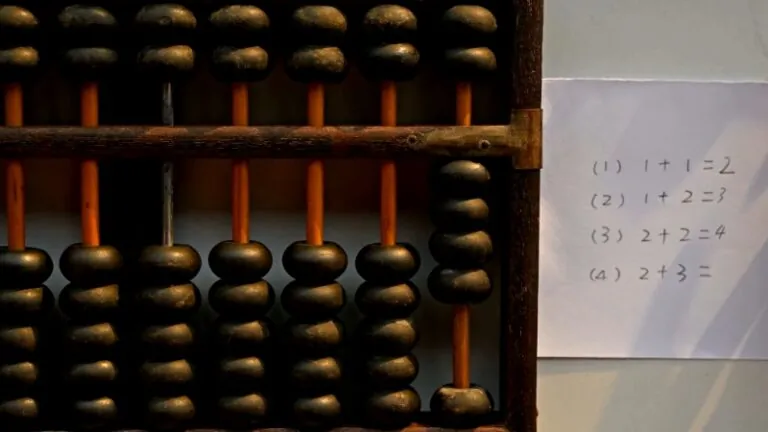 (1) 1 + 1 = 2
(2) 1 + 2 = 3
(3) 2 + 2 = 4
(4) 2 + 3 =